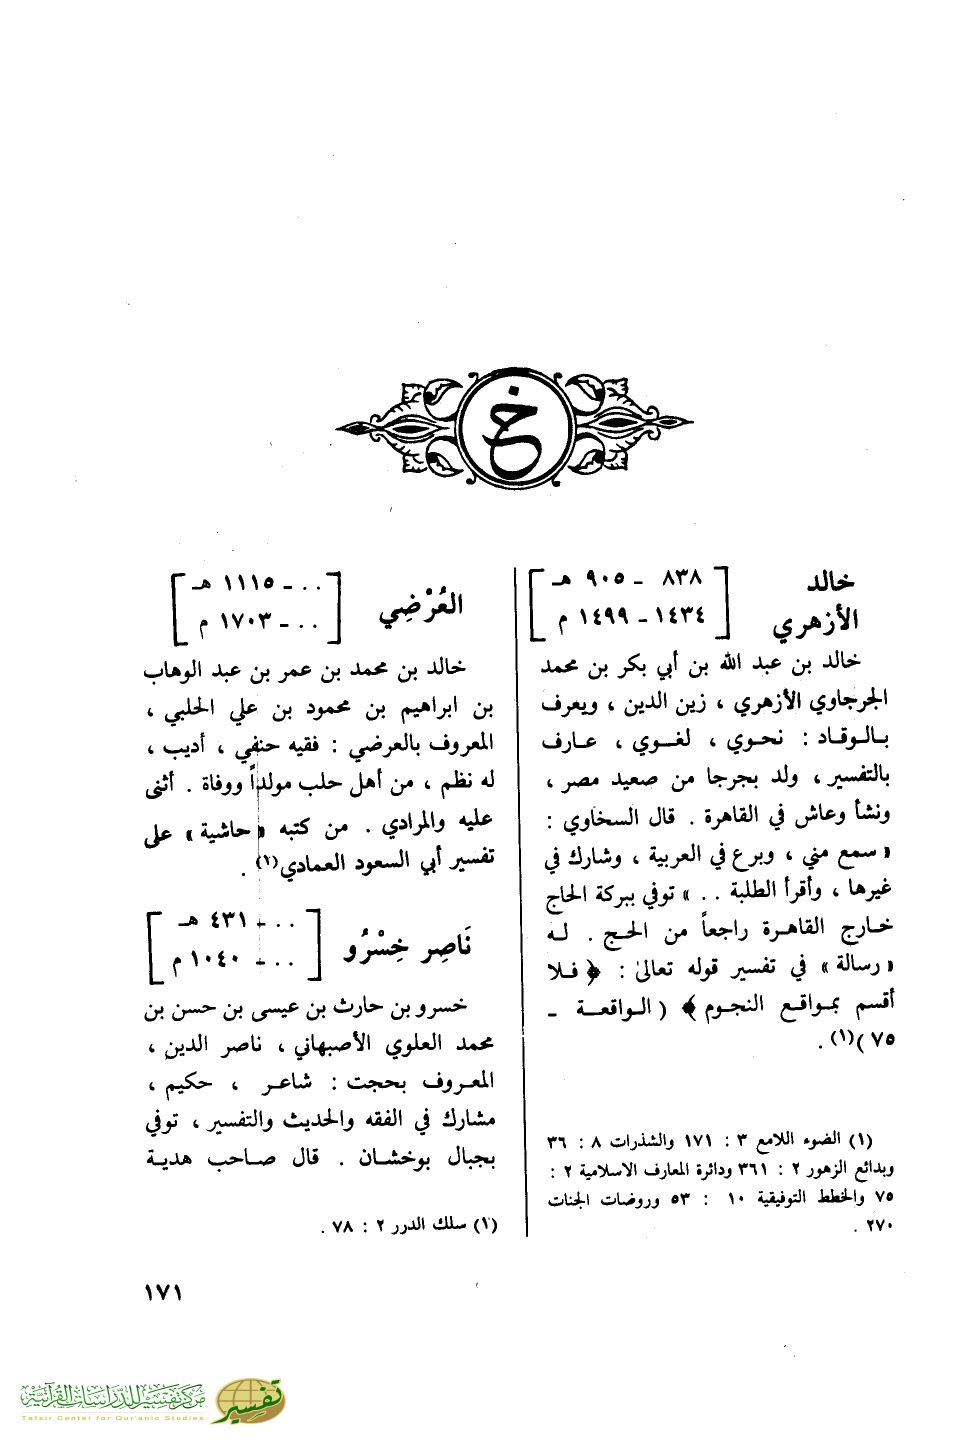 خ
خالد
الأزهري
[ ٨٣٨ - ٩٠٥ هـ
١٤٣٤ - ١٤٩٩ م ]
خالد بن عبد الله بن أبي بكر بن محمد
الجرجاوي الأزهري ، زين الدين ، ويعرف
بالوقاد : نحوي ، لغوي ، عارف
بالتفسير ، ولد بجرجا من صعيد مصر ،
ونشأ وعاش في القاهرة . قال السخاوي :
« سمع مني ، وبرع في العربية ، وشارك في
غيرها ، وأقرأ الطلبة . . » توفي ببركة الحاج
خارج القاهرة راجعاً من الحج . له
« رسالة » في تفسير قوله تعالىٰ : ﴿ فلا
أقسم بمواقع النجوم ﴾ ( الواقعة -
٧٥ )(١) .
(١) الضوء اللامع ٣ : ١٧١ والشذرات ٨ : ٣٦
وبدائع الزهور ٢ : ٣٦١ ودائرة المعارف الاسلامية ٢ :
٧٥ والخطط التوفيقية ١٠ : ٥٣ وروضات الجنات
٢٧٠ .
العُرْضِي
[ . . - ١١١٥ هـ
. . - ١٧٠٣ م ]
خالد بن محمد بن عمر بن عبد الوهاب
بن ابراهيم بن محمود بن علي الحلبي ،
المعروف بالعرضي : فقيه حنفي ، أديب ،
له نظم ، من أهل حلب مولداً ووفاة . أثنى
عليه والمرادي . من كتبه « حاشية » على
تفسير أبي السعود العمادي(١) .
نَاصِر خِسْرُو
[ . . - ٤٣١ هـ
. . - ١٠٤٠ م ]
خسرو بن حارث بن عيسى بن حسن بن
محمد العلوي الأصبهاني ، ناصر الدين ،
المعروف بحجت : شاعر ، حكيم ،
مشارك في الفقه والحديث والتفسير ، توفي
بجبال بوخشان . قال صاحب هدية
(١) سلك الدرر ٢ : ٧٨ .
١٧١
مركز تفسير للدراسات القرآنية
Tafsir Center for Qur'anic Studies
تفسير